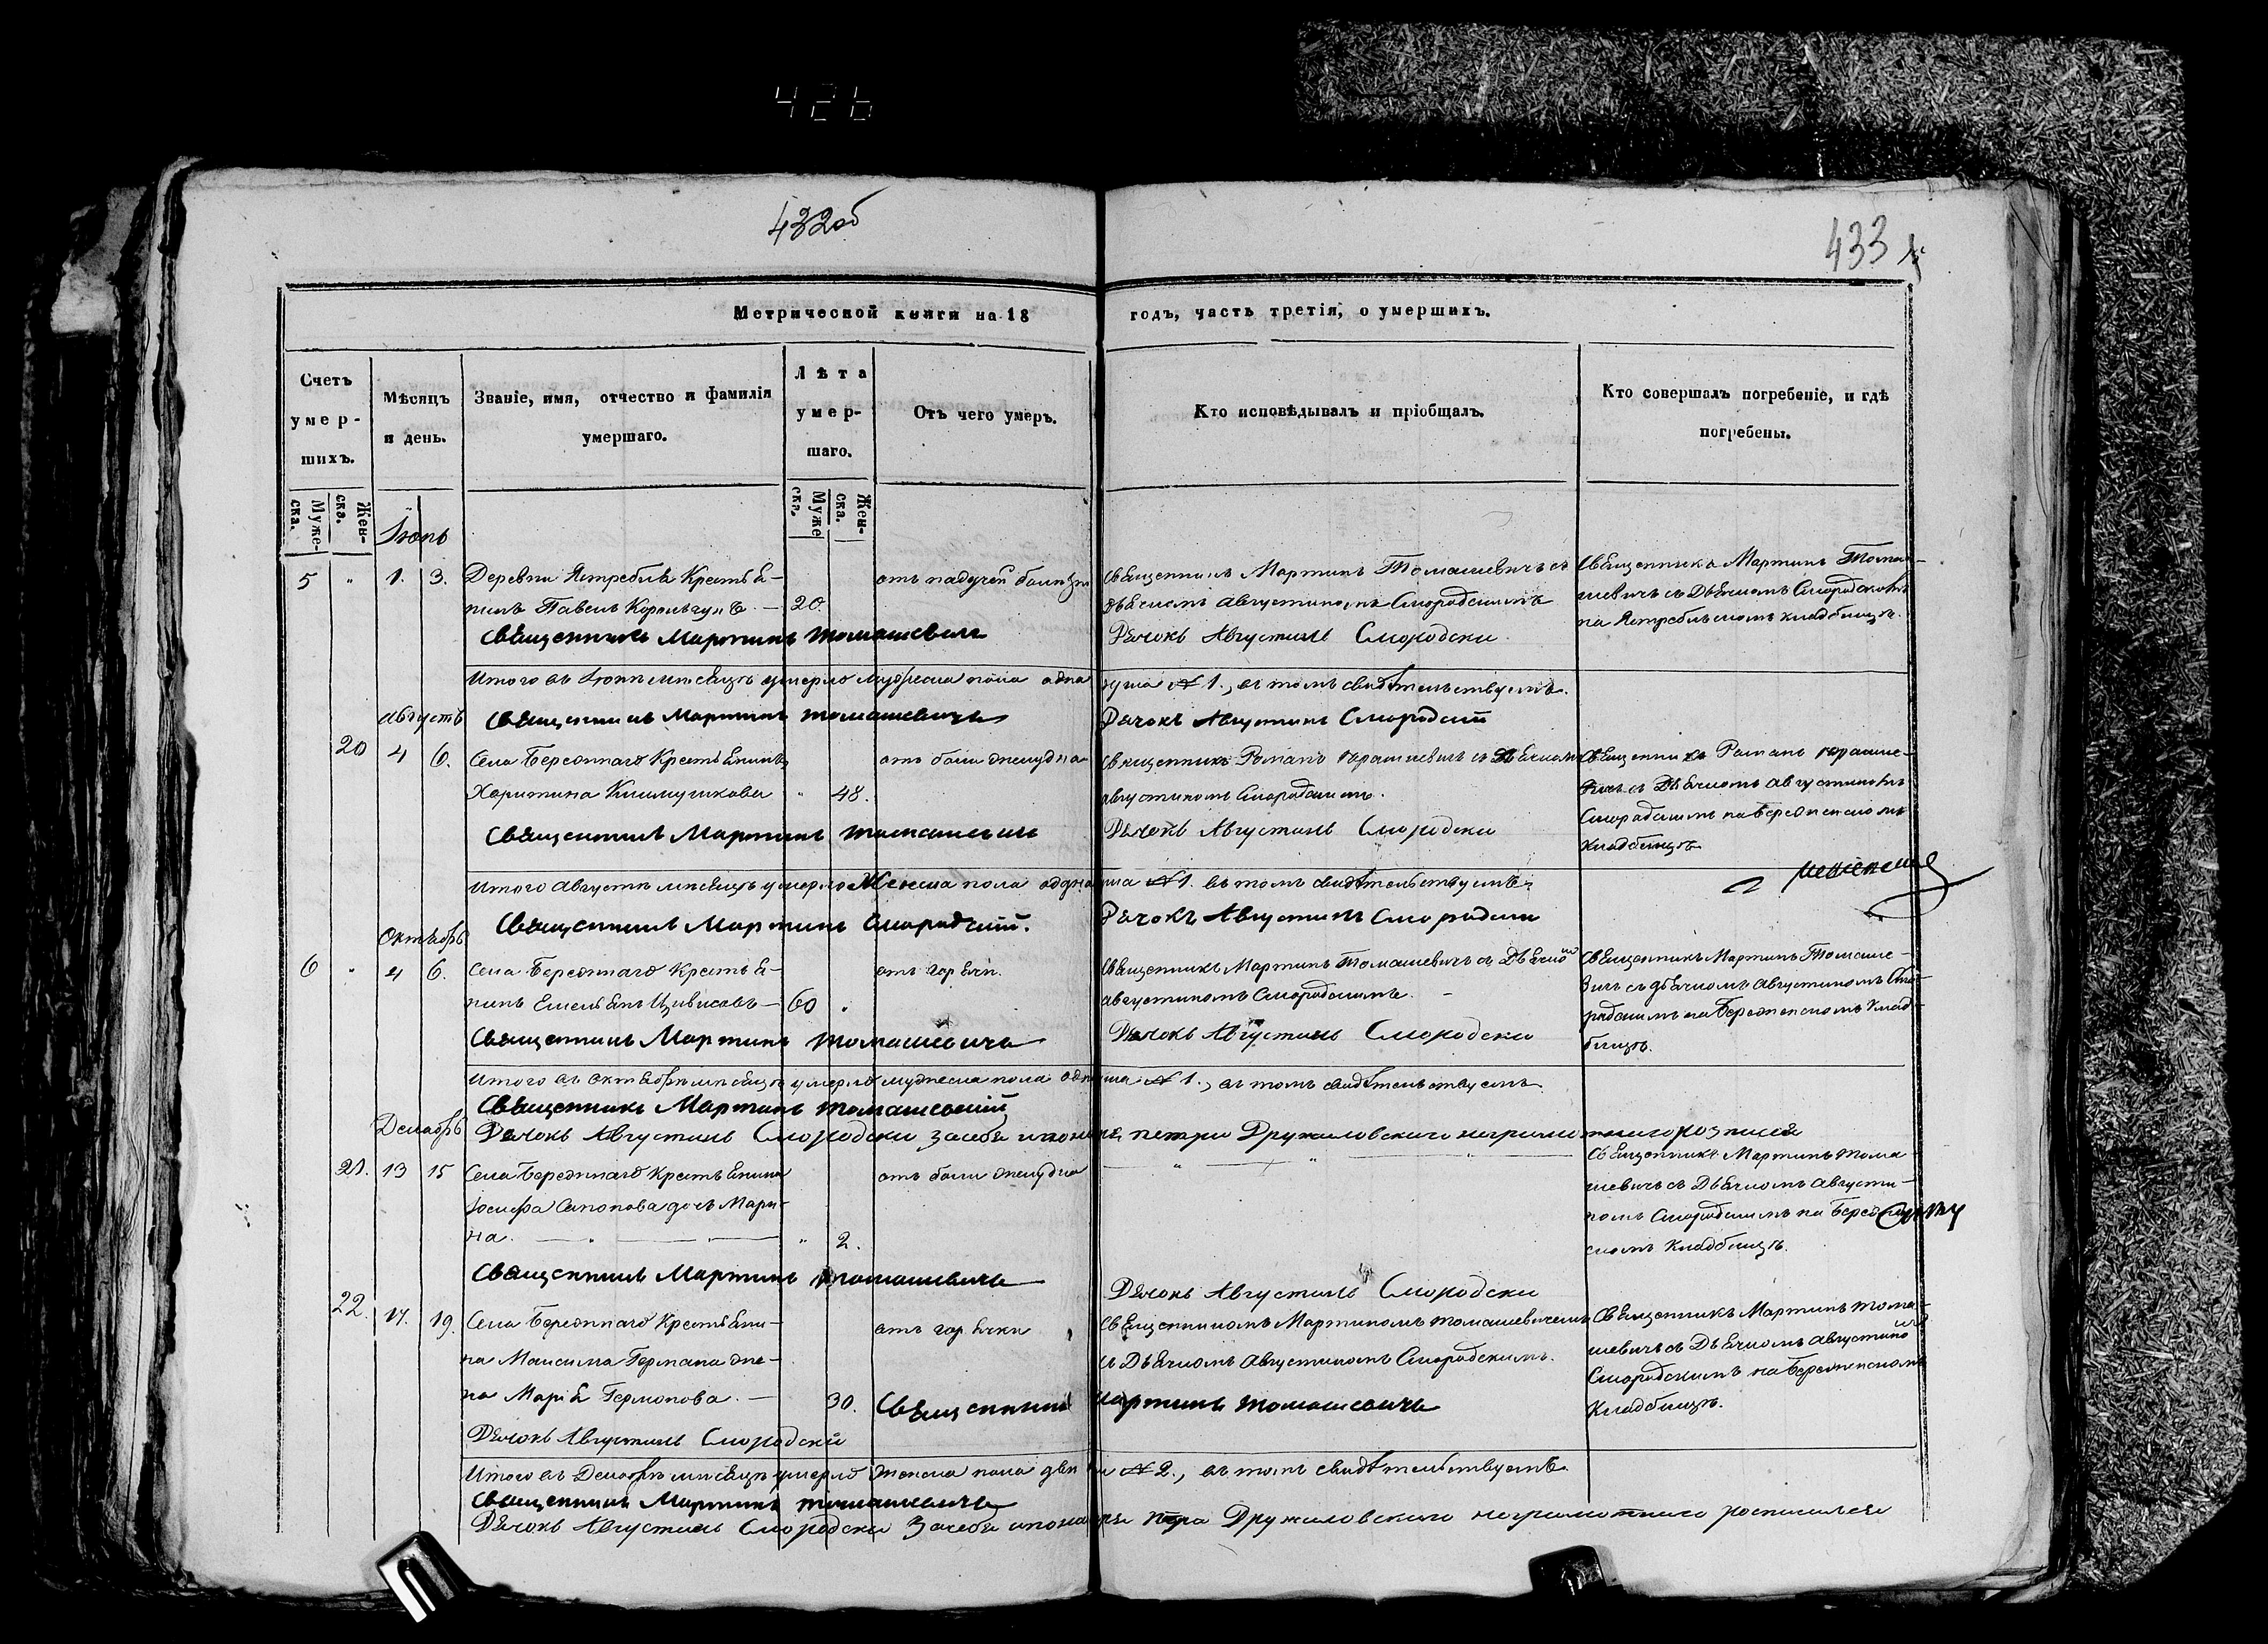 426
432об
433
Метрической книги на 18
годъ, часть третія, о умершихъ.
Счетъ умер-шихъ.
Мѣсяцъ и день.
Званіе, имя, отчество и фамилія умершаго.
Лѣта умер-шаго.
Отъ чего умеръ.
Кто исповѣдывалъ и пріобщалъ.
Кто совершалъ погребеніе, и гдѣ погребены.
Муже-ска.
Жен-ска.
Муже ска.
Жен-ска.
5 " 1. 3.
Деревни Ястребля Крестья-
нинъ Павелъ
20.
отъ падучей
Священникъ Мартинъ Томашевичъ съ
дьячкомъ Августиномъ Смородскимъ
Священникъ Мартинъ Томаш-
евичъ съ Дьячкомъ Смородскимъ
на Ястребльскомъ кладбищѣ.
Священникъ Мартинъ Томашевич
Дячокъ Августинъ Смородски
умерло мужеска пола одна
душа № 1., въ томъ свидѣтельствуемъ.
Августъ
Священникъ Мартинъ Томашевичъ
Дячокъ Августинъ Смородский
20 4 6.
Села Бережнаго Крестьянинъ
Харитина
" 48.
отъ боли
Священникъ Романъ съ Дьячкомъ
Августиномъ Смородскимъ.
Священникъ Романъ
съ Дьячкомъ Августиномъ
Смородскимъ на Бережненскомъ
Кладбищѣ
Священникъ Мартинъ
Дячокъ Августинъ Смородски
Итого Августѣ мѣсяцѣ умерло Женска пола
№ 1. въ томъ свидѣтельствуемъ
Священникъ Мартинъ Смородский.
Дячокъ Августинъ Смородски
Октябрь
6 " 4 6.
Села Бережнаго Крестья-
нинъ Емельянъ
60 "
отъ горячк.
Священникъ Мартинъ Томашевичъ съ Дьячко
Августиномъ Смородскимъ.
Священникъ Мартинъ Томаше-
вичъ съ дьячкомъ Августиномъ Смо-
родскимъ на Бережненскомъ Клад-
бищѣ.
Священникъ Мартинъ Томашевичъ
Дячокъ Августинъ Смородски
Итого въ Октябрѣ мѣсяцѣ умерло мужеска пола
№ 1., въ томъ свидѣтельствуемъ
Священникъ Мартинъ
Декабрь
Дячокъ Августинъ Смородски за себя и Дружиловского
21. 13 15
Села Бережнаго Крестьянина
Іосифа дочь Мари-
на.
" 2.
отъ боли
Священникъ Мартинъ Тома-
шевичъ съ Дьячкомъ Августи-
номъ Смородскимъ на
скомъ Кладбищѣ.
Священникъ Мартинъ Томашевичъ
Дячокъ Августинъ Смородски
22. 17. 19.
Села Бережнаго Крестьяни-
на Максима Германа же-
на Марія
30.
отъ горячки
Священникомъ Мартиномъ Томашевичемъ
съ Дьячкомъ Августиномъ Смородскимъ.
Священникъ Мартинъ Тома-
шевичъ съ Дьячкомъ Августино
Смородскимъ на Бережненскомъ
Кладбищѣ.
Священникъ Мартинъ Томашевичъ
Дячокъ Августинъ Смородски
Итого въ Декабрѣ мѣсяцѣ умерло женска пола двѣ
№ 2., въ томъ свидѣтельствуемъ.
Священникъ Мартинъ Томашевичъ
Дячокъ Августинъ Смородски за себя и Дружиловского неграмотного росписался